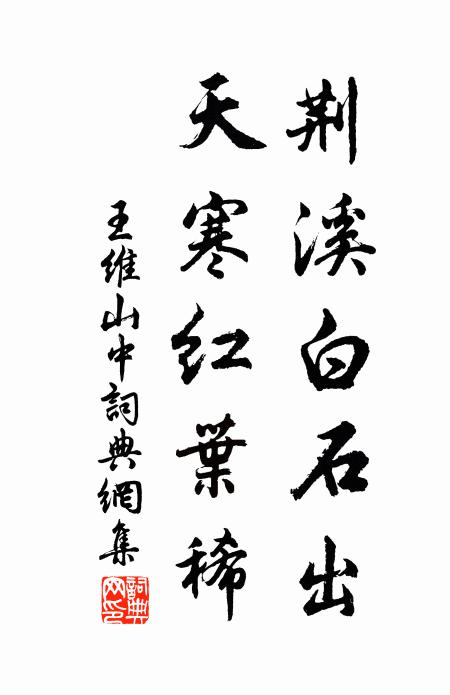 荆溪白石出
天寒红葉稀
王維山中詞典網集
詞典
网印